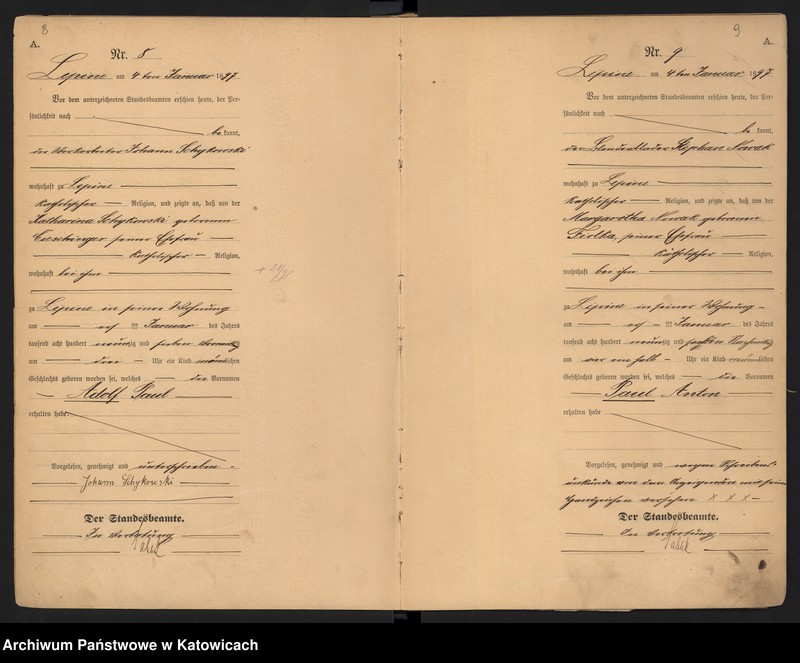 8
A.
Nr. 8
Lipine am 4ten Januar 1897
Vor dem unterzeichneten Standesbeamten erschien heute, der Per-
sönlichkeit nach
be kannt,
der Werkarbeiter Johann Schykowski
wohnhaft zu Lipine
katholischer Religion, und zeigte an, daß von der
Katharina Schykowski geborenen
seiner Ehefrau
katholischer Religion,
wohnhaft bei ihm
zu Lipine in seiner Wohnung
am ten Januar des Jahres
tausend acht hundert neunzig und sieben
um Uhr ein Kind männlichen
Geschlechts geboren worden sei, welches die Vornamen
Adolf Paul
erhalten habe
Vorgelesen, genehmigt und unterschrieben
Johann Schykowski
Der Standesbeamte.
In Vertretung
9
A.
Nr. 9
Lipine am 4ten Januar 1897
Vor dem unterzeichneten Standesbeamten erschien heute, der Per-
sönlichkeit nach
be kannt,
der Stephan Nowak
wohnhaft zu Lipine
katholischer Religion, und zeigte an, daß von der
Margaretha Nowak geborenen
Fiolka, seiner Ehefrau
katholischer Religion,
wohnhaft bei ihm
zu Lipine in seiner Wohnung
am ten Januar des Jahres
tausend acht hundert neunzig und sieben
um Uhr ein Kind männlichen
Geschlechts geboren worden sei, welches die Vornamen
Paul Anton
erhalten habe
Vorgelesen, genehmigt und wegen Schreibens-
unkunde von dem Anzeigenden mit seinem
Handzeichen versehen x x x
Der Standesbeamte.
In Vertretung
Archiwum Państwowe w Katowicach